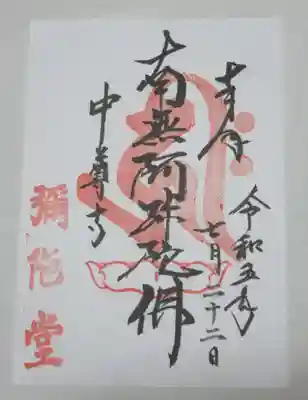 奉拝
令和五年
七月二十二日
南無阿弥陀佛
中尊寺
彌陀堂